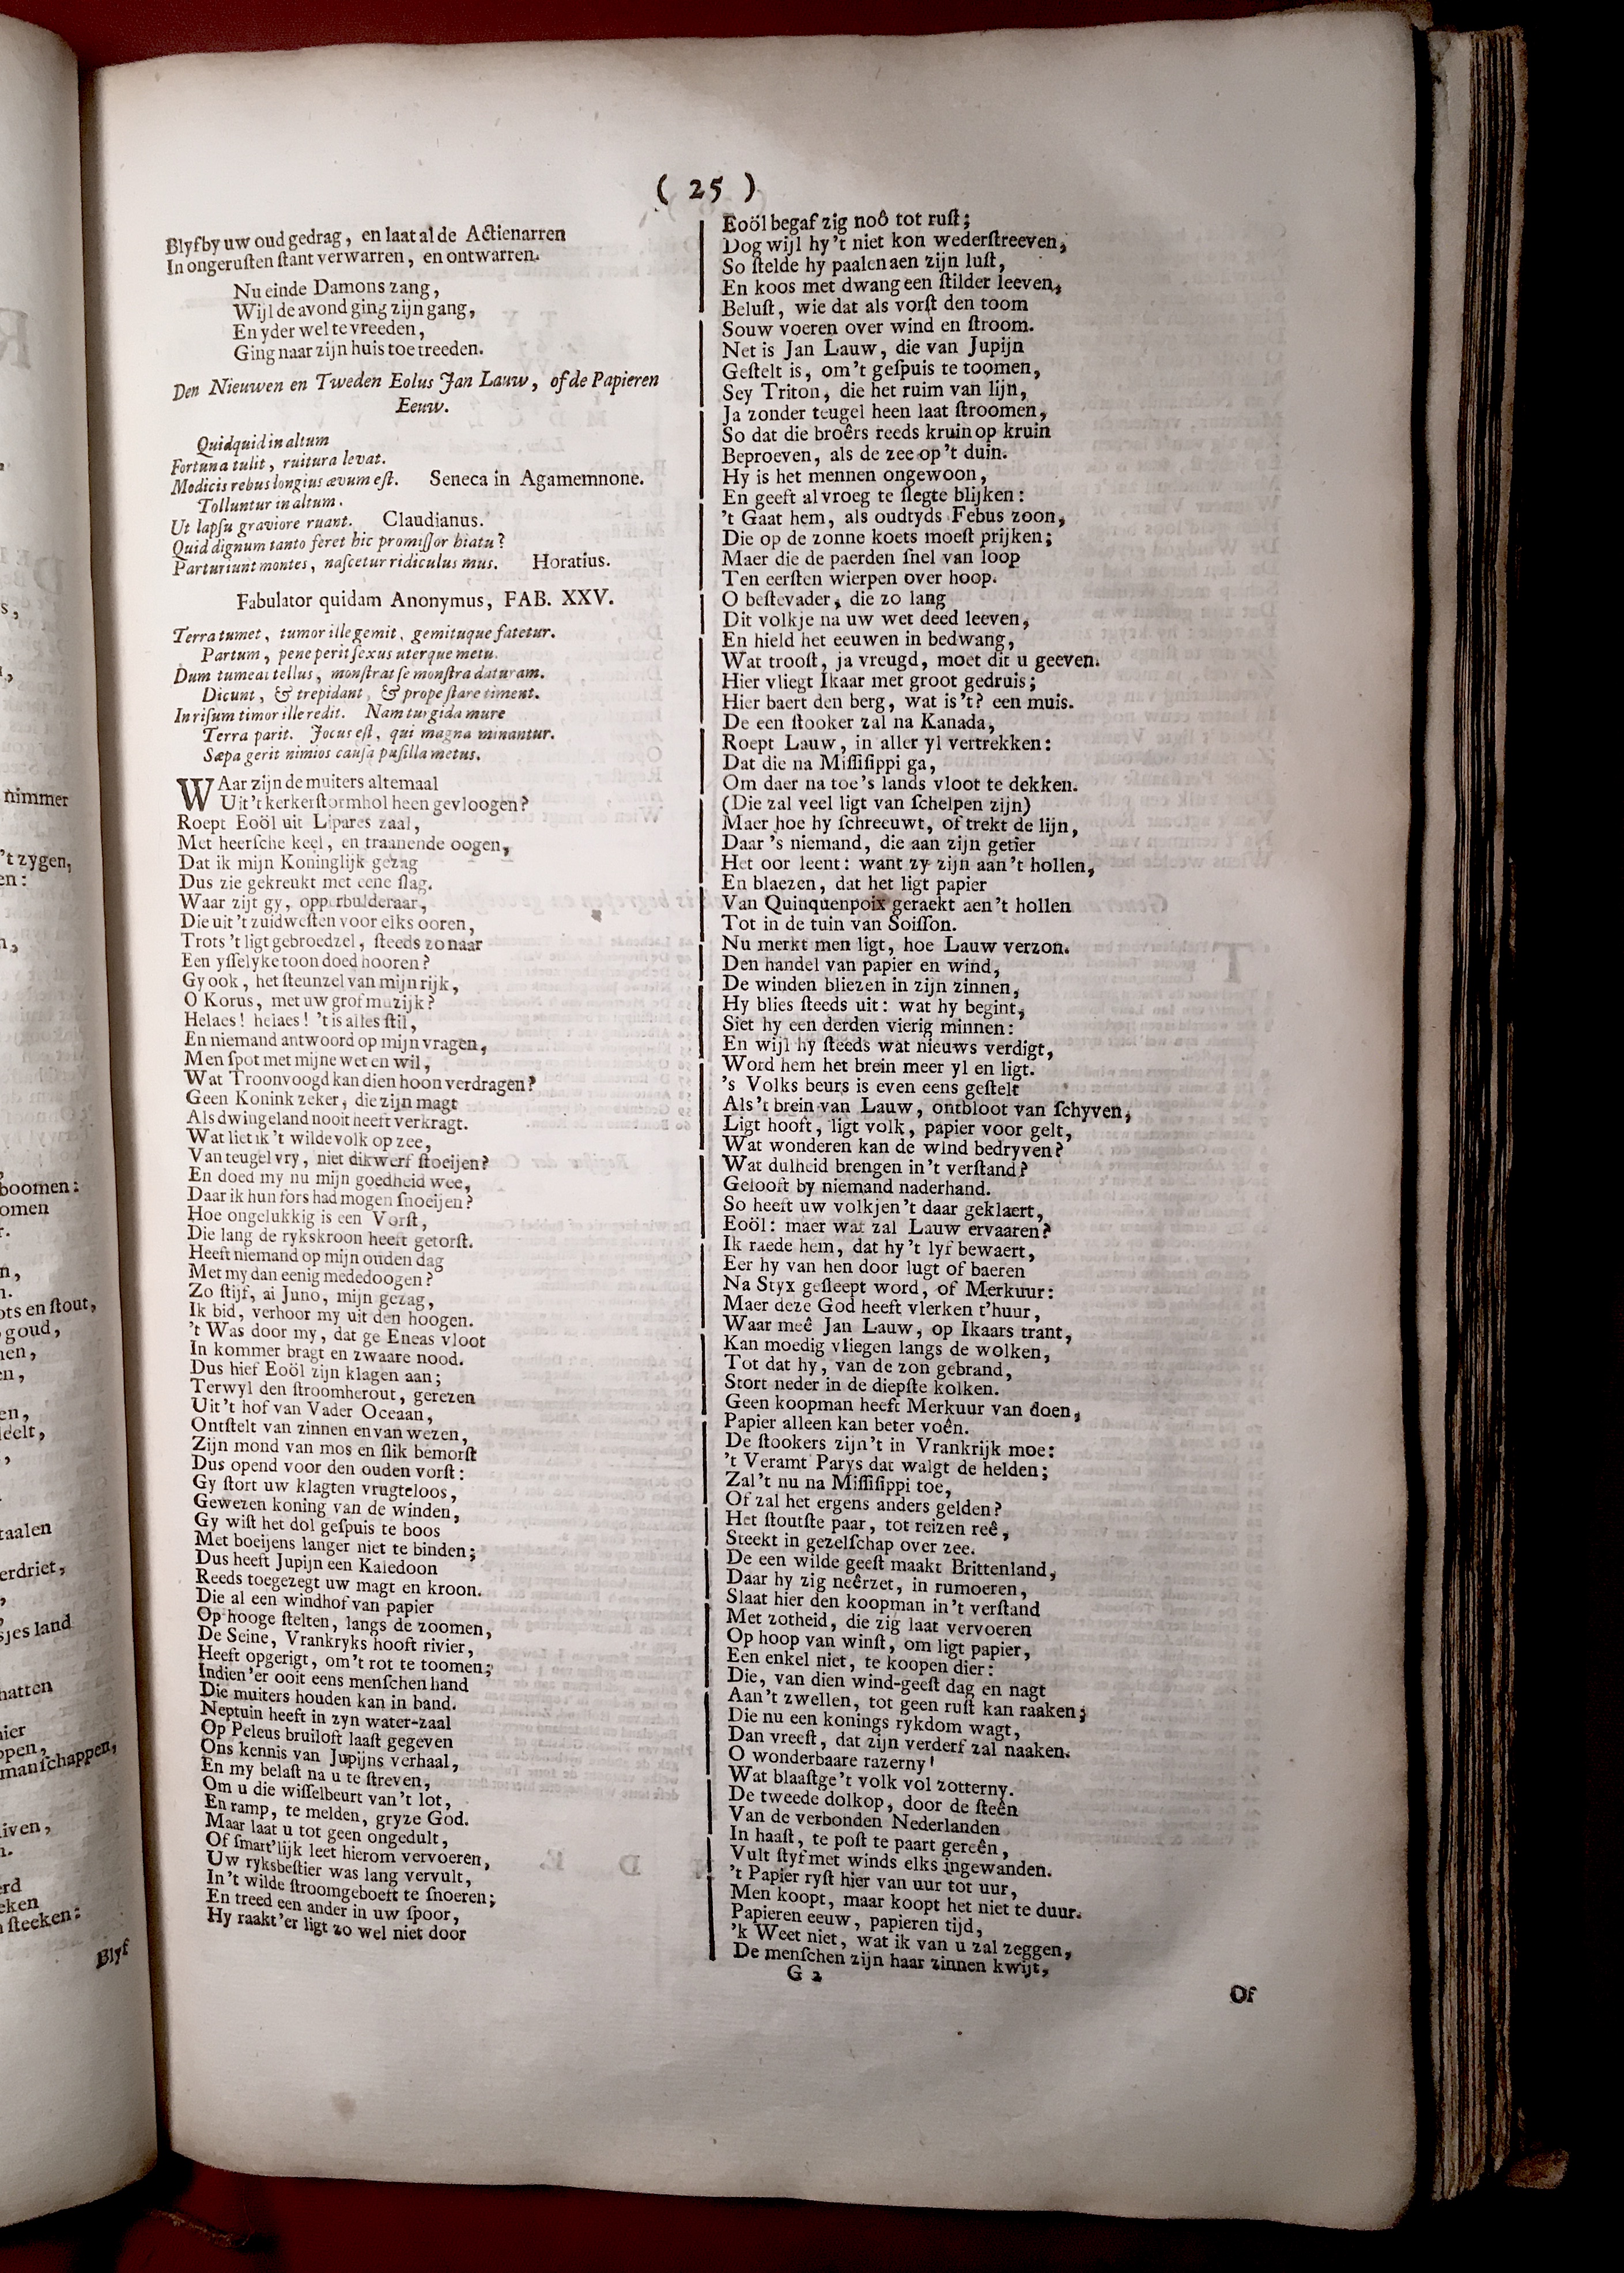 ( 25 )
Blyf by uw oud gedrag, en laat al de Actienarren
In ongeruſten ſtant verwarren, en ontwarren.
Nu einde Damons zang,
Wijl de avond ging zijn gang,
En yder wel te vreeden,
Ging naar zijn huis toe treeden.
Den Nieuwen en Tweden Eolus Jan Lauw, of de Papieren
Eeuw.
Quidquid in altum
Fortuna tulit, ruitura levat.
Modicis rebus longius ævum eſt. Seneca in Agamemnone.
Tolluntur in altum.
Ut lapſu graviore ruant. Claudianus.
Quid dignum tanto feret hic promiſſor hiatu?
Parturiunt montes, naſcetur ridiculus mus. Horatius.
Fabulator quidam Anonymus, FAB. XXV.
Terra tumet, tumor ille gemit, gemituque fatetur.
Partum, pene perit ſexus uterque metu.
Dum tumeat tellus, monſtrat ſe monſtra daturam.
Dicunt, & trepidant, & prope ſtare timent.
In riſum timor ille redit. Nam turgida mure
Terra parit. Jocus eſt, qui magna minantur.
Sæpa gerit nimios cauſa puſilla metus.
WAar zijn de muiters altemaal
Uit 't kerkerſtormhol heen gevloogen?
Roept Eoöl uit Lipares zaal,
Met heerſche keel, en traanende oogen,
Dat ik mijn Koninglijk gezag
Dus zie gekreukt met eene ſlag.
Waar zijt gy, opperbulderaar,
Die uit 't zuidweſten voor elks ooren,
Trots 't ligt gebroedzel, ſteeds zo naar
Een yſſelyke toon doed hooren?
Gy ook, het ſteunzel van mijn rijk,
O Korus, met uw grof muzijk?
Helaes! helaes! 't is alles ſtil,
En niemand antwoord op mijn vragen,
Men ſpot met mijne wet en wil,
Wat Troonvoogd kan dien hoon verdragen?
Geen Konink zeker, die zijn magt
Als dwingeland nooit heeft verkragt.
Wat liet ik 't wilde volk op zee,
Van teugel vry, niet dikwerf ſtoeijen?
En doed my nu mijn goedheid wee,
Daar ik hun fors had mogen ſnoeijen?
Hoe ongelukkig is een Vorſt,
Die lang de rykskroon heeft getorſt.
Heeft niemand op mijn ouden dag
Met my dan eenig mededoogen?
Zo ſtijf, ai Juno, mijn gezag,
Ik bid, verhoor my uit den hoogen.
't Was door my, dat ge Eneas vloot
In kommer bragt en zwaare nood.
Dus hief Eoöl zijn klagen aan;
Terwyl den ſtroomherout, gerezen
Uit 't hof van Vader Oceaan,
Ontſtelt van zinnen en van wezen,
Zijn mond van mos en ſlik bemorſt
Dus opend voor den ouden vorſt:
Gy ſtort uw klagten vrugteloos,
Gewezen koning van de winden,
Gy wiſt het dol geſpuis te boos
Met boeijens langer niet te binden;
Dus heeft Jupijn een Kaledoon
Reeds toegezegt uw magt en kroon.
Die al een windhof van papier
Op hooge ſtelten, langs de zoomen,
De Seine, Vrankryks hooft rivier,
Heeft opgerigt, om 't rot te toomen;
Indien 'er ooit eens menſchen hand
Die muiters houden kan in band.
Neptuin heeft in zyn water-zaal
Op Peleus bruiloft laaſt gegeven
Ons kennis van Jupijns verhaal,
En my belaſt na u te ſtreven,
Om u die wiſſelbeurt van 't lot,
En ramp, te melden, gryze God.
Maar laat u tot geen ongedult,
Of ſmart'lijk leet hierom vervoeren,
Uw ryksbeſtier was lang vervult,
In 't wilde ſtroomgeboeft te ſnoeren;
En treed een ander in uw ſpoor,
Hy raakt 'er ligt zo wel niet door
Eoöl begaf zig noô tot ruſt;
Dog wijl hy 't niet kon wederſtreeven,
So ſtelde hy paalen aen zijn luſt,
En koos met dwang een ſtilder leeven,
Beluſt, wie dat als vorſt den toom
Souw voeren over wind en ſtroom.
Net is Jan Lauw, die van Jupijn
Geſtelt is, om 't geſpuis te toomen,
Sey Triton, die het ruim van lijn,
Ja zonder teugel heen laat ſtroomen,
So dat die broêrs reeds kruin op kruin
Beproeven, als de zee op 't duin.
Hy is het mennen ongewoon,
En geeft al vroeg te ſlegte blijken:
't Gaat hem, als oudtyds Febus zoon,
Die op de zonne koets moeſt prijken;
Maer die de paerden ſnel van loop
Ten eerſten wierpen over hoop.
O beſtevader, die zo lang
Dit volkje na uw wet deed leeven,
En hield het eeuwen in bedwang,
Wat trooſt, ja vreugd, moet dit u geeven.
Hier vliegt Ikaar met groot gedruis;
Hier baert den berg, wat is 't? een muis.
De een ſtooker zal na Kanada,
Roept Lauw, in aller yl vertrekken:
Dat die na Miſſiſippi ga,
Om daer na toe 's lands vloot te dekken.
(Die zal veel ligt van ſchelpen zijn)
Maer hoe hy ſchreeuwt, of trekt de lijn,
Daar 's niemand, die aan zijn getier
Het oor leent: want zy zijn aan 't hollen,
En blaezen, dat het ligt papier
Van Quinquenpoix geraekt aen 't hollen
Tot in de tuin van Soiſſon.
Nu merkt men ligt, hoe Lauw verzon.
Den handel van papier en wind,
De winden bliezen in zijn zinnen,
Hy blies ſteeds uit: wat hy begint,
Siet hy een derden vierig minnen:
En wijl hy ſteeds wat nieuws verdigt,
Word hem het brein meer yl en ligt.
's Volks beurs is even eens geſtelt
Als 't brein van Lauw, ontbloot van ſchyven,
Ligt hooft, ligt volk, papier voor gelt,
Wat wonderen kan de wind bedryven?
Wat dulheid brengen in 't verſtand?
Gelooft by niemand naderhand.
So heeft uw volkjen 't daar geklaert,
Eoöl: maer wat zal Lauw ervaaren?
Ik raede hem, dat hy 't lyf bewaert,
Eer hy van hen door lugt of baeren
Na Styx geſleept word, of Merkuur:
Maer deze God heeft vlerken t'huur,
Waar meê Jan Lauw, op Ikaars trant,
Kan moedig vliegen langs de wolken,
Tot dat hy, van de zon gebrand,
Stort neder in de diepſte kolken.
Geen koopman heeft Merkuur van doen,
Papier alleen kan beter voên.
De ſtookers zijn 't in Vrankrijk moe:
't Veramt Parys dat walgt de helden;
Zal 't nu na Miſſiſippi toe,
Of zal het ergens anders gelden?
Het ſtoutſte paar, tot reizen reê,
Steekt in gezelſchap over zee.
De een wilde geeſt maakt Brittenland,
Daar hy zig neêrzet, in rumoeren,
Slaat hier den koopman in 't verſtand
Met zotheid, die zig laat vervoeren
Op hoop van winſt, om ligt papier,
Een enkel niet, te koopen dier:
Die, van dien wind-geeſt dag en nagt
Aan 't zwellen, tot geen ruſt kan raaken;
Die nu een konings rykdom wagt,
Dan vreeſt, dat zijn verderf zal naaken.
O wonderbaare razerny!
Wat blaaſtge 't volk vol zotterny.
De tweede dolkop, door de ſteên
Van de verbonden Nederlanden
In haaſt, te poſt te paart gereên,
Vult ſtyf met winds elks ingewanden.
't Papier ryſt hier van uur tot uur,
Men koopt, maar koopt het niet te duur.
Papieren eeuw, papieren tijd,
'k Weet niet, wat ik van u zal zeggen,
De menſchen zijn haar zinnen kwijt,
G 2
Of
nimmer
't zygen,
boomen:
ots en ſtout,
goud,
taalen
erdriet,
sjes land
hatten
manſchappen,
ſteeken:
Blyf